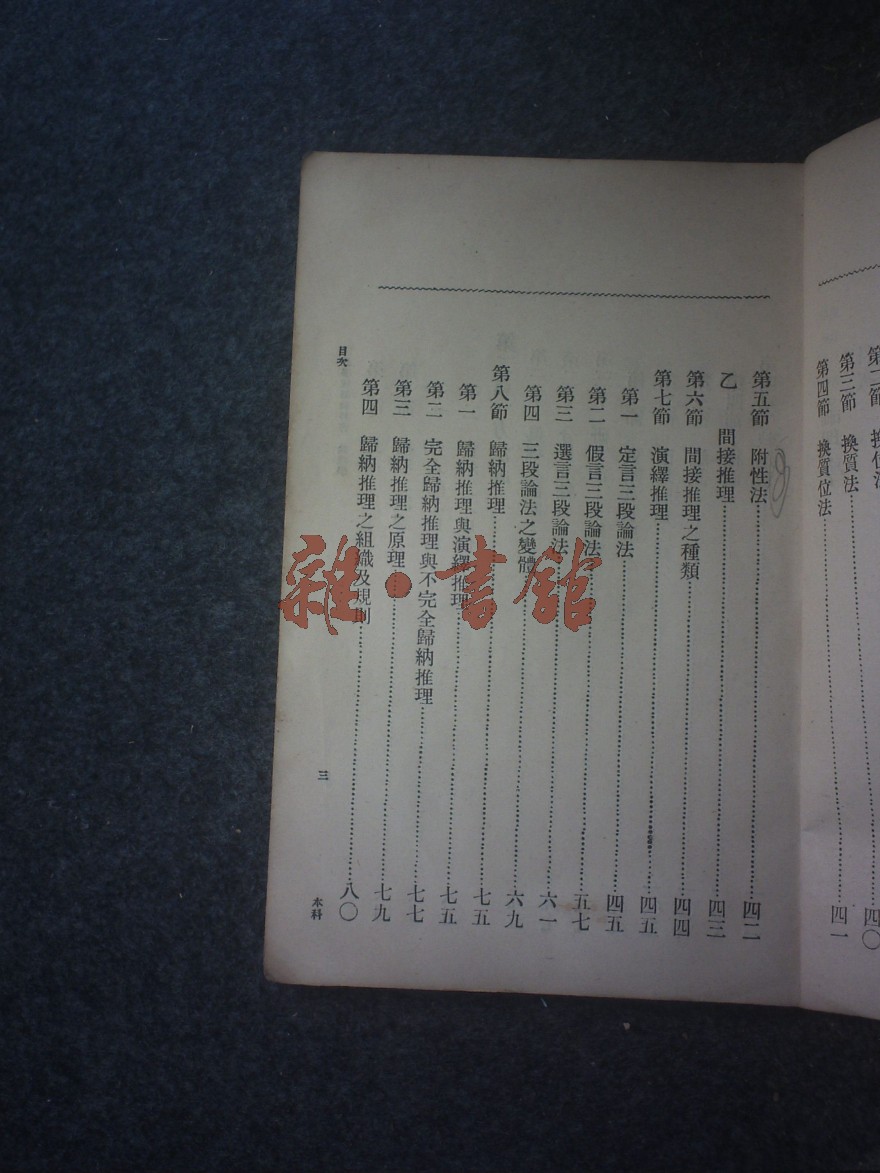 第三節 換質法
四〇
第四節 換質位法……四一
第五節 附性法……四二
乙 間接推理……四三
第六節 間接推理之種類……四四
第七節 演繹推理……四五
第一 定言三段論法……四五
第二 假言三段論法……五七
第三 選言三段論法……六一
第四 三段論法之變體……六九
第八節 歸納推理……七五
第一 歸納推理與演繹推理……七五
第二 完全歸納推理與不完全歸納推理……七七
第三 歸納推理之原理……七九
第四 歸納推理之組織及規則……八〇
目次
三
本科
雜·書館